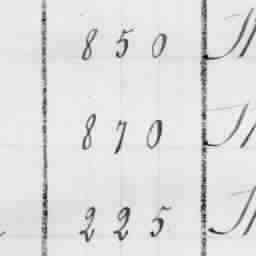 850
870
225